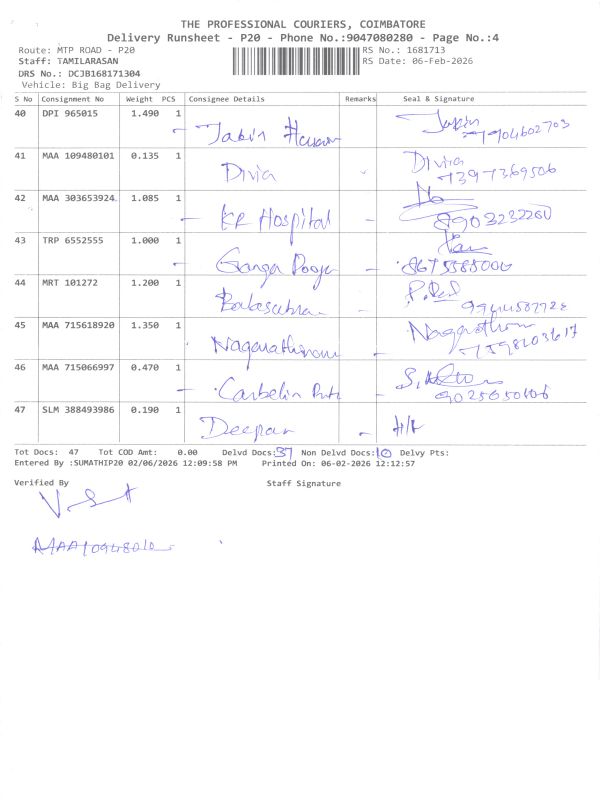 THE PROFESSIONAL COURIERS, COIMBATORE
Delivery Runsheet - P20 - Phone No.:9047080280 - Page No.:4
Route: MTP ROAD - P20 RS No.: 1681713
Staff: TAMILARASAN RS Date: 06-Feb-2026
DRS No.: DCJB168171304
Vehicle: Big Bag Delivery
S No Consignment No Weight PCS Consignee Details Remarks Seal & Signature
40 DPI 965015 1.490 1
Jabin Hassan 7904602703
41 MAA 109480101 0.135 1 Divia
Divia 7397369506
42 MAA 303653924 1.085 1
KR Hospital 8903232260
43 TRP 6552555 1.000 1
Ganga Pooja 8675585000
44 MRT 101272 1.200 1
Balasubra
45 MAA 715618920 1.350 1 Nagarathinam
Nagarathinam 7598203617
46 MAA 715066997 0.470 1
Carbelin
47 SLM 388493986 0.190 1
Deepan H/R
Tot Docs: 47 Tot COD Amt: 0.00 Delvd Docs:37 Non Delvd Docs:10 Delvy Pts:
Entered By :SUMATHIP20 02/06/2026 12:09:58 PM Printed On: 06-02-2026 12:12:57
Verified By Staff Signature